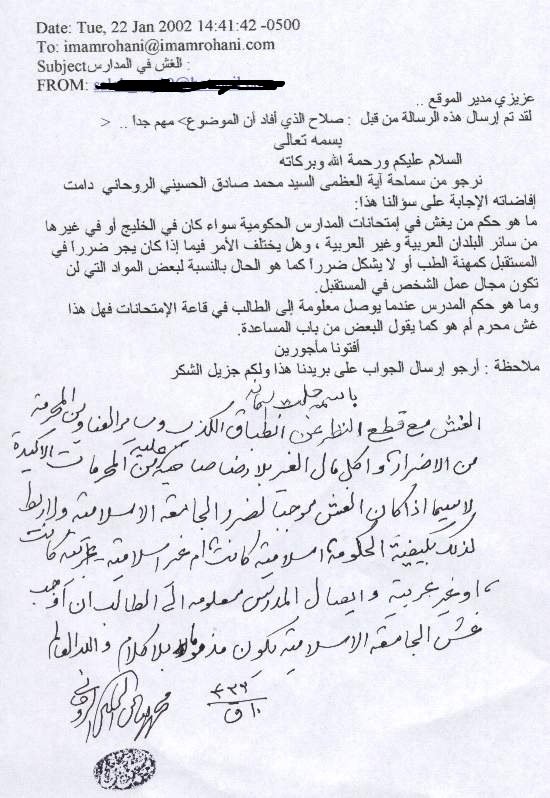 Date: Tue, 22 Jan 2002 14:41:42 -0500
To: imamrohani@imamrohani.com
Subject الغش في المدارس :
FROM:
عزيزي مدير الموقع ..
لقد تم إرسال هذه الرسالة من قبل : صلاح الذي أفاد أن الموضوع> مهم جداً .. <
بسمه تعالى
السلام عليكم ورحمة الله وبركاته
نرجو من سماحة آية العظمى السيد محمد صادق الحسيني الروحاني دامت
إفاضاته الإجابة على سؤالنا هذا:
ما هو حكم من يغش في إمتحانات المدارس الحكومية سواء كان في الخليج أو في غيرها
من سائر البلدان العربية وغير العربية ، وهل يختلف الأمر فيما إذا كان يجر ضرراً في
المستقبل كمهنة الطب أو لا يشكل ضرراً كما هو الحال بالنسبة لبعض المواد التي لن
تكون مجال عمل الشخص في المستقبل.
وما هو حكم المدرس عندما يوصل معلومة إلى الطالب في قاعة الإمتحانات فهل هذا
غش محرم أم هو كما يقول البعض من باب المساعدة.
أفتونا مأجورين
ملاحظة : أرجو إرسال الجواب على بريدنا هذا ولكم جزيل الشكر
باسمه جلت اسمائه
الغش مع قطع النظر عن انطباق الكذب وسائر العناوين المحرمة
من الاضرار و اكل مال الغير بلا رضا صاحبه عليه من المحرمات الاكيدة
لا سيما اذا كان الغش موجبا لضرر الجامعة الاسلامية ولا ربط
لذلك بكيفية الحكومة اسلامية كانت ام غير اسلامية عربية كانت
او غير عربية و ايصال المدرس معلومه الى الطالب ان اوجب
غش الجامعة الاسلامية يكون مذموما بلا كلام و الله العالم